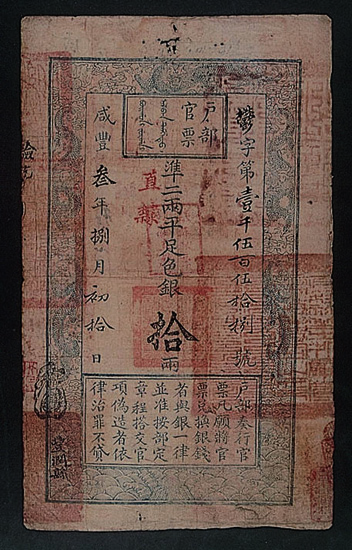 戶部
官票
字第壹千伍百伍拾捌號
準二兩平足色銀拾兩
直隸
咸豐叁年捌月初拾日
戶部奏行官
票凡願將官
票兌換銀錢
者與銀一律
並准按部定
章程搭交官
項偽造者依
律治罪不貸